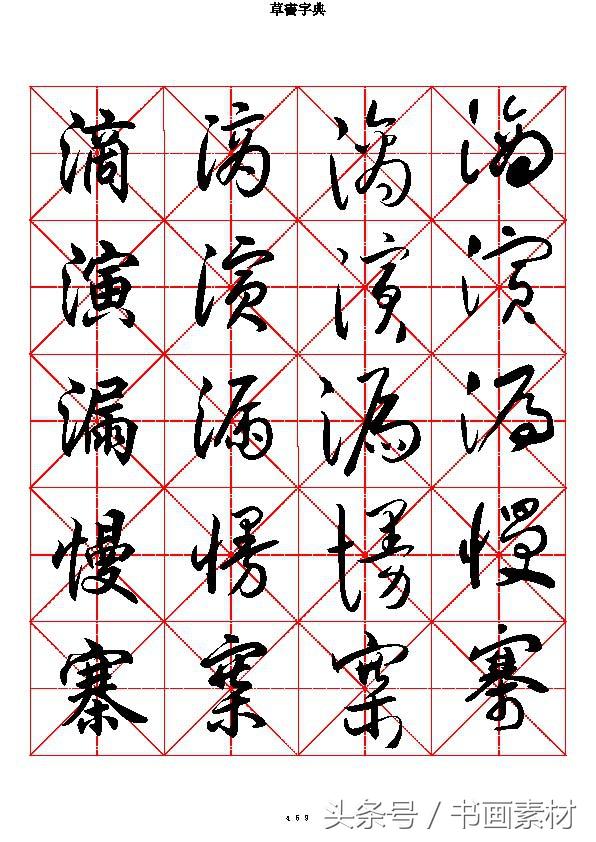 草書字典
滴 滴 滴 滴
演 演 演 演
漏 漏 漏 漏
慢 慢 慢 慢
寨 寨 寨 寨
469
头条号 / 书画素材